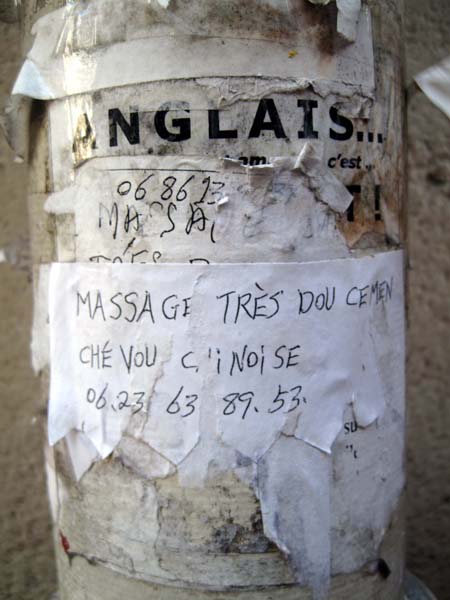 ANGLAIS...
c'est
06 86 13
MASSA
T!
MASSAGE TRÈS DOUCEMEN
CHÉ VOU C'INOISE
06.23 63 89.53.
su